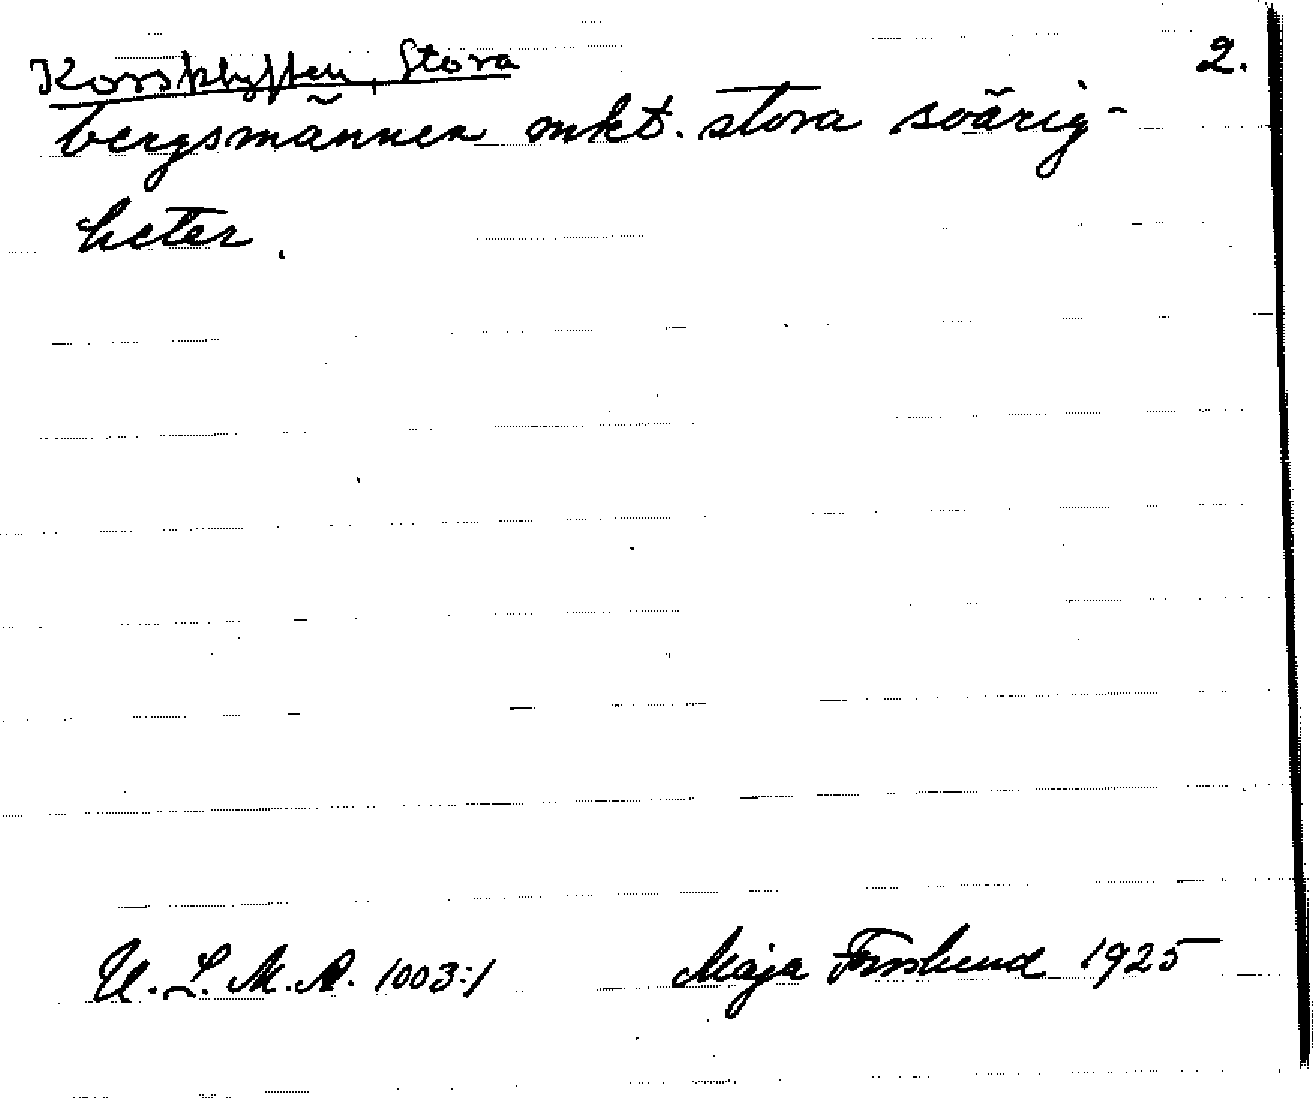 Korsklyften, Stora 2.
bergsmännen mkt. stora svårig-
heter.
U. L. M. A. 1003:1 Maja Forslund 1925